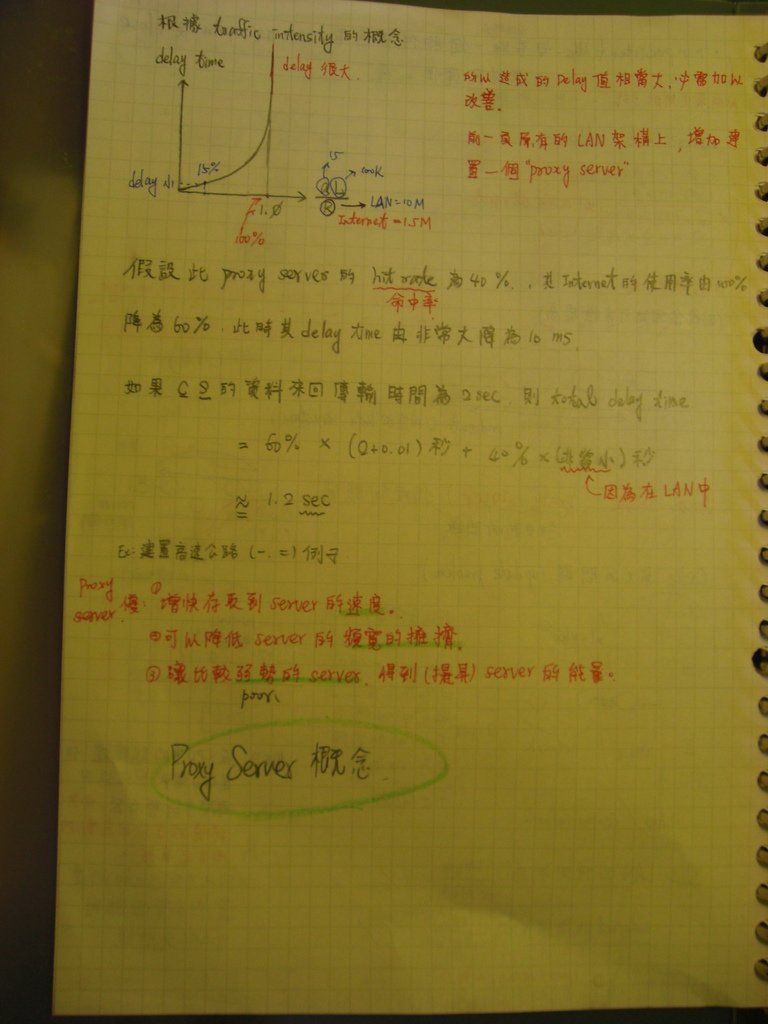 根據 traffic intensity 的概念
delay time
delay 很大.
所以造成的 Delay 值相當大, 才需加以
改善.
前一頁原有的 LAN 架構上, 增加建
置一個 "proxy server"
15
100K
15%
delay 小
Q L
R
LAN=10M
1.0
Internet = 1.5M
100%
假設此 proxy server 的 hit rate 為 40%, 其 Internet 的使用率由 100%
命中率
降為 60%, 此時其 delay time 由非常大降為 10 ms.
如果 C S 的資料來回傳輸時間為 2 sec, 則 total delay time
= 60% × (2+0.01) 秒 + 40% × (非常小) 秒
因為在 LAN 中
≈ 1.2 sec
Ex: 建置高速公路 (一. 二) 例子
Proxy
server 優: ① 增快存取到 server 的速度。
② 可以降低 server 的頻寬的擁擠.
③ 讓比較弱勢的 server, 得到 (提昇) server 的能量。
poor.
Proxy Server 概念.